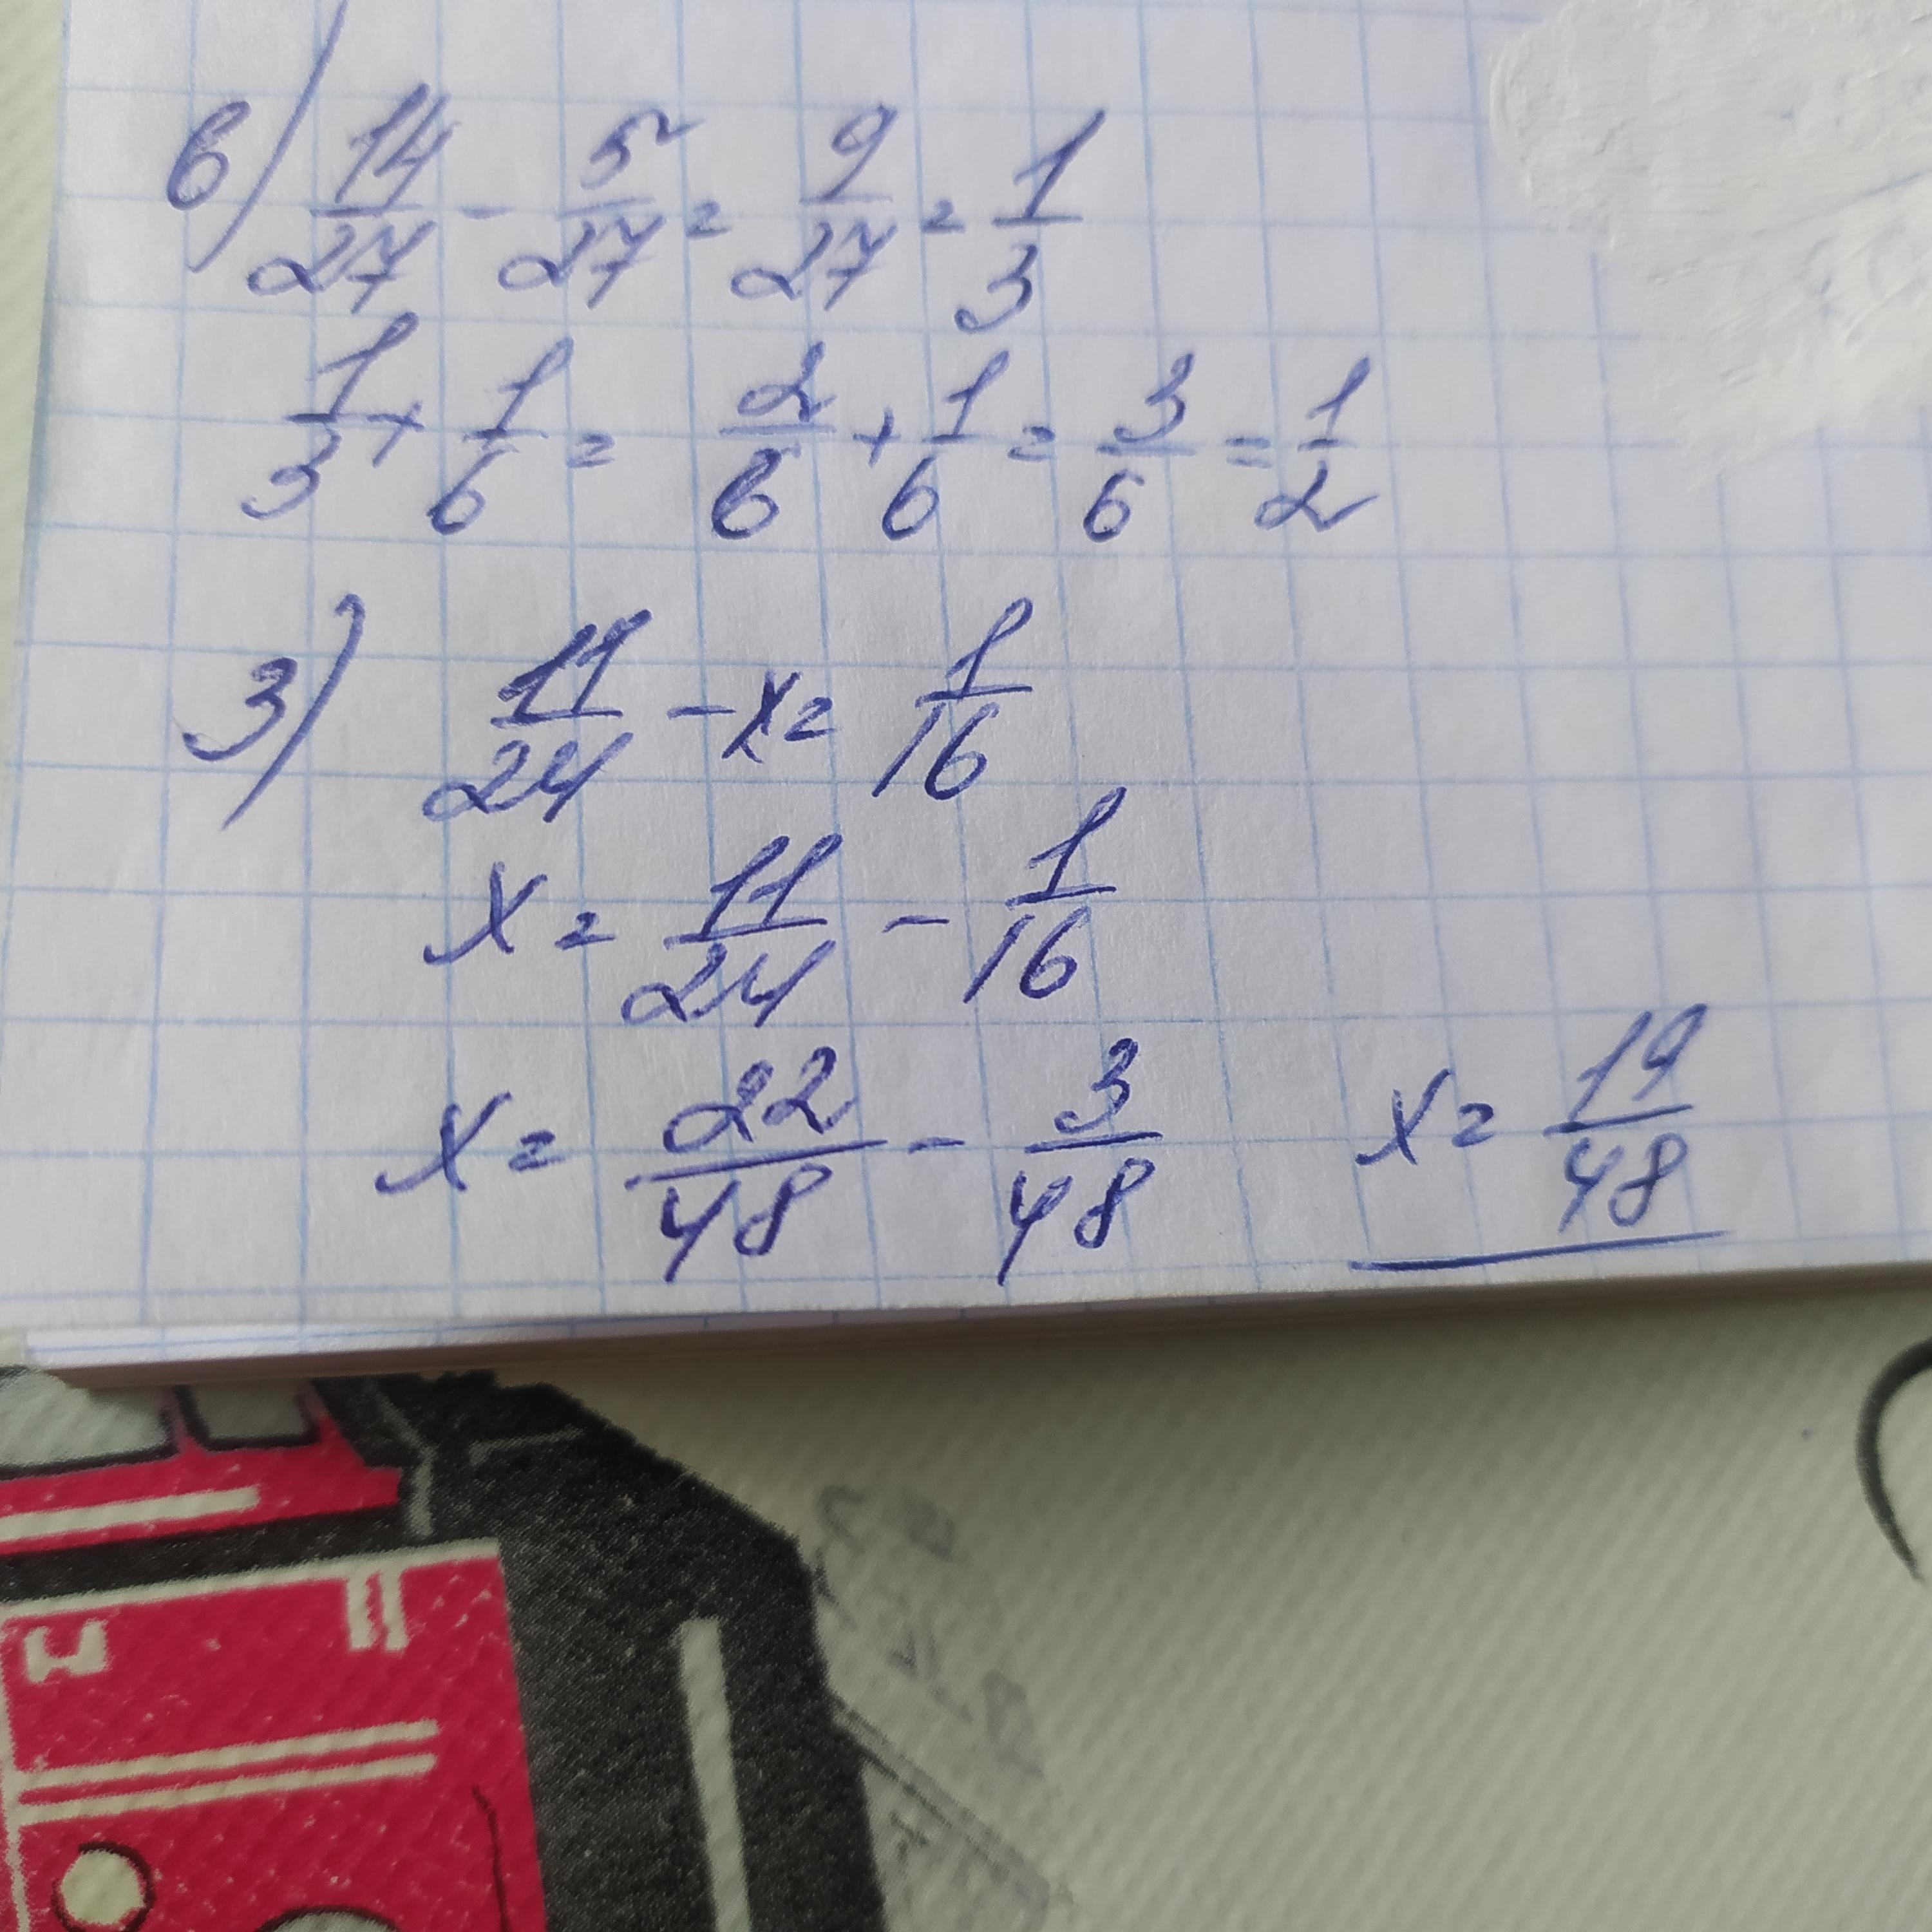 в) 14/27 - 5/27 = 9/27 = 1/3
1/3 + 1/6 = 2/6 + 1/6 = 3/6 = 1/2
3) 11/24 - x = 1/16
x = 11/24 - 1/16
x = 22/48 - 3/48 x = 19/48